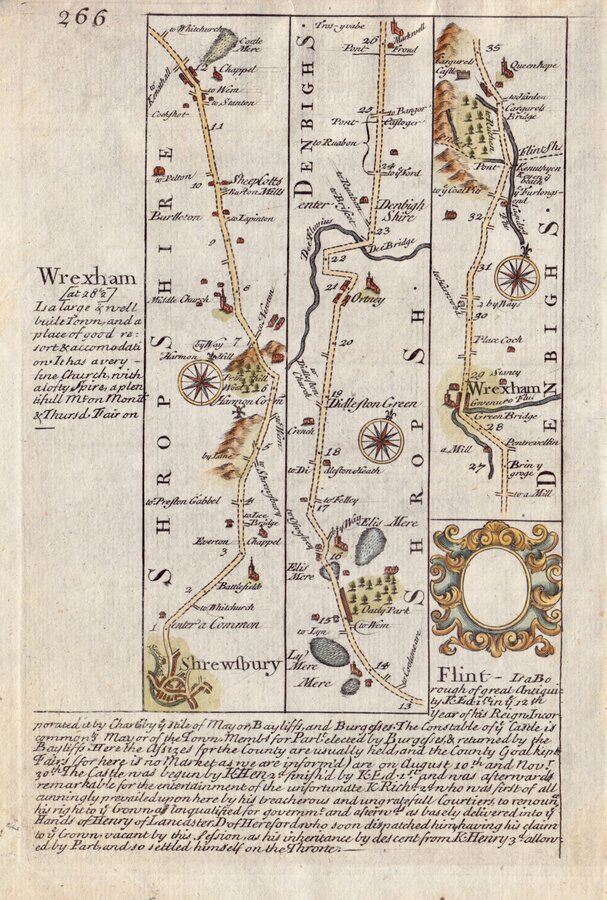 266
Wrexham
[at 28½]
Is a large & well
built Town, and a
place of good re=
sort & accomodati
on. It has a very
fine Church, with
a lofty Spire, a plen
tifull Mt on Mond.
& Thursd. Fair on
SHROPSHIRE
to Whitchurch
Coole
Mere
12
Chappel
to Wem
to Stanton
Cockshot
11
to
10
Sheep Cotts
Ruston Mills
Burlleton
to Lapinton
9
Middle Church
8
to Newton
by Way
7
Harmon
Hill
Wood
6
Harmon Com
to Wem
by Lane
5
to Shrewsbury
to Preston Gabbel
4
to Lee
Bridge
Everton
Chappel
3
Battlefield
2
to Whitchurch
1
enter a Common
Shrewsbury
DENBIGHS.
SHROPSH.
26
Pont
Markwell
Froud
25
to Bangor
Pont
Castoger
to Ruabon
24
to Ruabon
enter
Denbigh
Shire
23
Dee Fluvius
Dee Bridge
22
21
Ortney
20
19
Didleston Green
Crench
18
to Di
dleston Heath
to Felley
17
by Way
Elis Mere
16
Elis
Mere
Oadly Park
to Wem
15
to Lyn
Lyⁿ
Mere
14
Mere
13
DENBIGHS.
35
Cargurels
Castle
Queenhope
Cargurels
Bridge
Flint Sh.
Pont
to yᵉ Coal Pits
32
31
by Ways
30
Place Coch
29
Stansty
Wrexham
Gwenuro Flu
Green Bridge
28
a Mill
Pontrevellin
27
Brin y
groge
to a Mill
Flint - Is a Bo
rough of great Antiqui-
ty K. Ed. 1st in yᵉ 12th
year of his Reign Incor
porated it by Chart. by yᵉ stile of Mayor, Bayliffs, and Burgeses. The Constable of yᵉ Castle is
common.ly Mayor of the Town. Membs. for Parl. elected by Burgess.s & returned by the
Bayliffs. Here the Assizes for the County are usually held, and the County Goal kept
Fairs (for here is no Market as we are inform'd) are on August 10th and Novr.
30th. The Castle was begun by K. Hen. 2d. finish'd by K. Ed. 1st. and was afterwards
remarkable for the entertainment of the unfortunate K. Rich. 2d. who was first of all
cunningly prevailed upon here by his treacherous and ungratefull Courtiers to renoun
his right to yᵉ Crown as unqualified for governmt. and afterw.ds as basely delivered into yᵉ
Hands of Henry of Lancaster, D. of Hereford, who soon dispatched him, having his claim
to yᵉ Crown, vacant by this Session, as his inheritance by descent from K. Henry 3d. allow
ed by Parl. and so settled himself on the Throne.